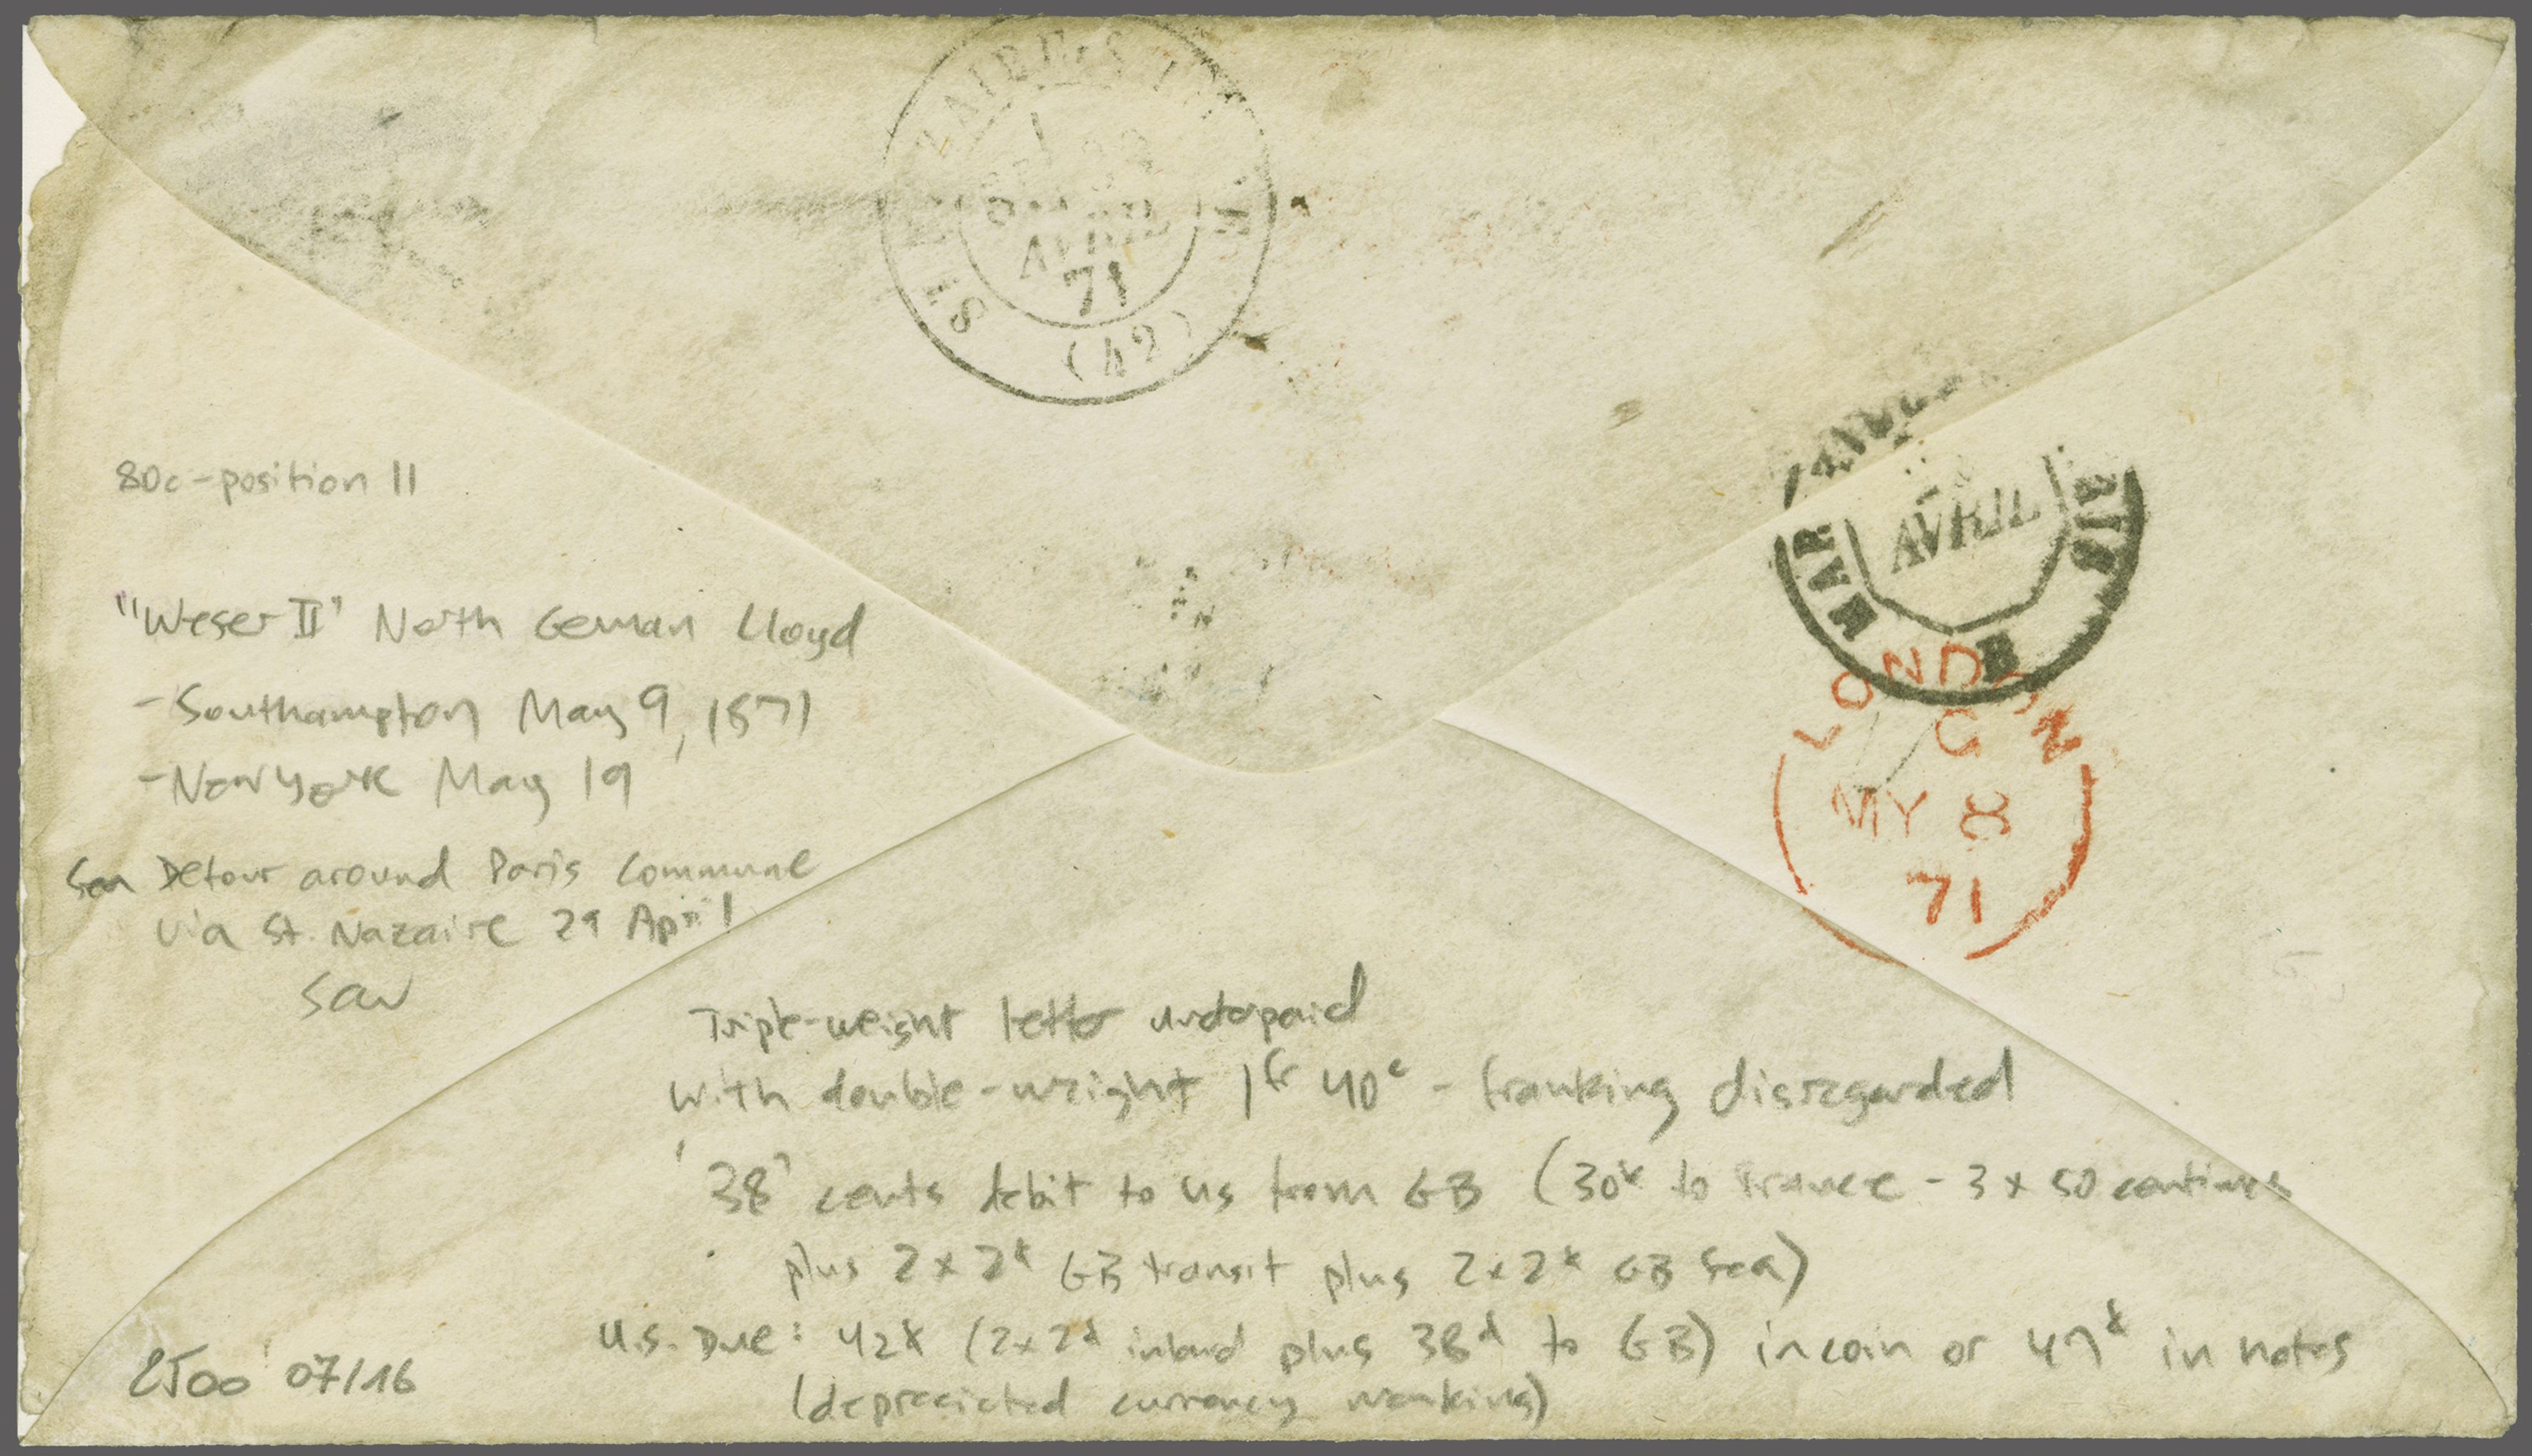 ST NAZAIRE
AVRIL
71
(42)
AVRIL
MAR
LONDON
C
MY 8
71
80c-position II
"Weser II" North German Lloyd
- Southampton May 9, 1871
- New York May 19
Detour around Paris Commune
via St. Nazaire 29 April
Triple-weight letter underpaid
with double-weight 1fr 40c - franking disregarded
'38' cents debit to US from GB (30¢ to France - 3 x 50 centimes
plus 2 x 2¢ GB transit plus 2 x 2¢ GB Sea)
U.S. Due: 42¢ (2x2¢ inland plus 38¢ to GB) in coin or 47¢ in notes
(depreciated currency marking)
07/16